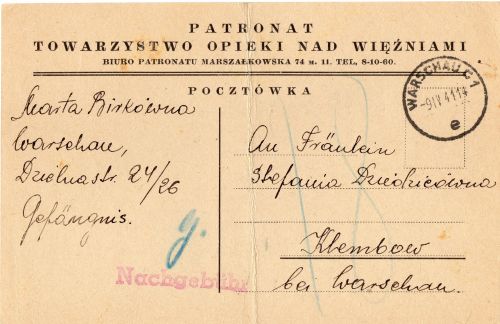 PATRONAT
TOWARZYSTWO OPIEKI NAD WIĘŹNIAMI
BIURO PATRONATU MARSZAŁKOWSKA 74 m. 11. TEL. 8-10-60.
POCZTÓWKA
WARSCHAU C1
-9IV 41
e
Marta Birkówna
Warschau,
Dzielnastr. 24/26
Gefängnis.
An Fräulein
Stefania Dziedzicówna
Klembow
bei Warschau.
Nachgebühr